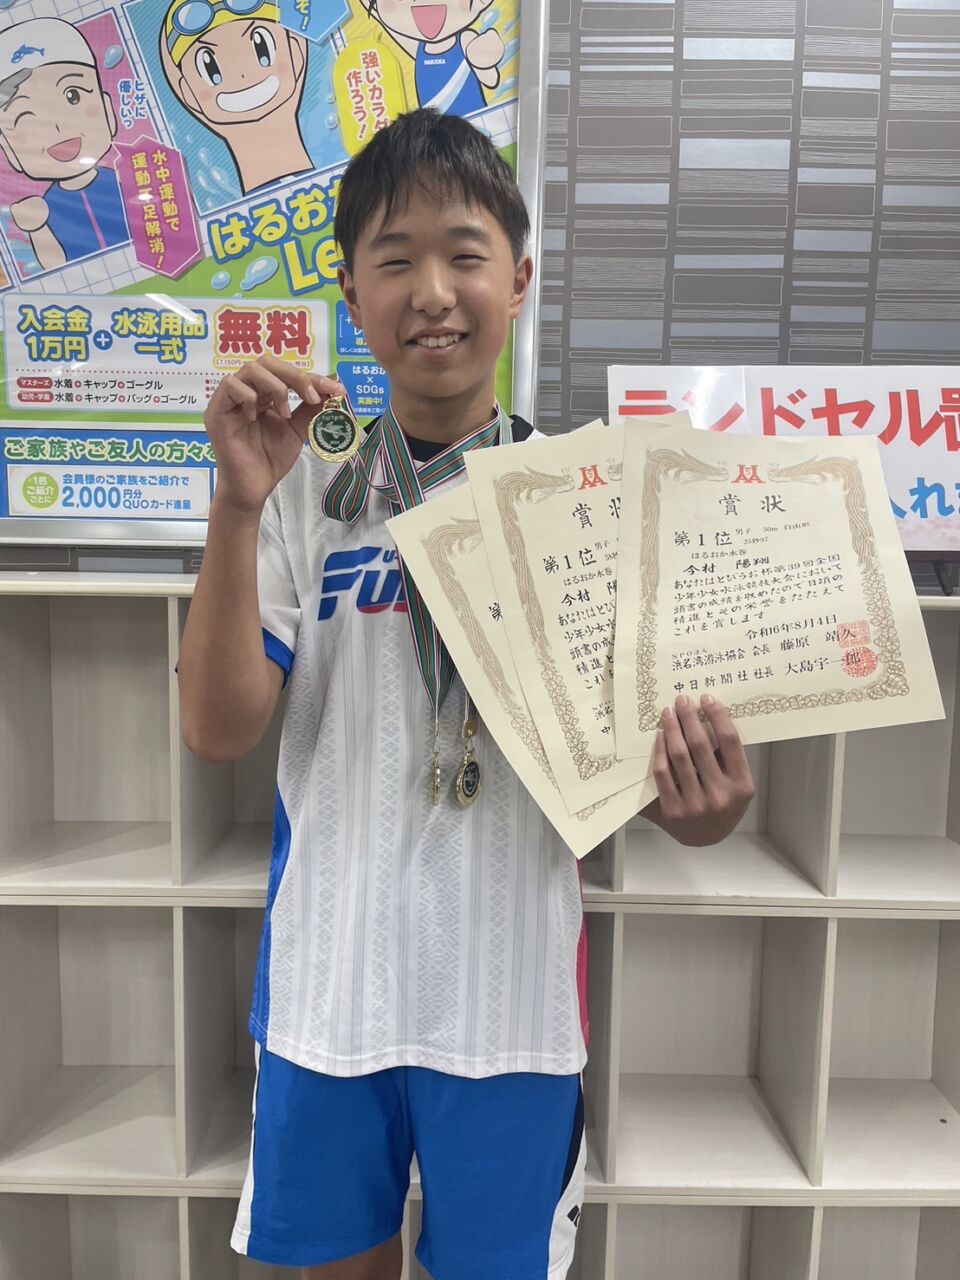 ヒザに
優しいっ
水中運動で
運動不足解消!
ぞ!
強いカラダ
作ろう!
HARUOKA
はるおか
Le
入会金
1万円
+
水泳用品
一式
無料
マスターズ 水着+キャップ+ゴーグル
幼児・学童 水着+キャップ+バッグ+ゴーグル
はるおか
×
SDGs
実施中!
ご家族やご友人の方々
1名
ご紹介
ごとに
会員様のご家族をご紹介で
2,000円分
QUOカード進呈
ランドセル
入れ
2024
FU
賞状
第1位 男子 50m 自由形
25秒97
はるおか水巻
今村 陽翔
あなたはとびうお杯第39回全国
少年少女水泳競技大会において
頭書の成績を収めたので日頃の
精進とその栄誉をたたえて
これを賞します
令和6年8月4日
NPO法人
浜名湾游泳協会 会長 藤原 靖久
中日新聞社 社長 大島宇一郎
賞状
第1位 男子
58秒
はるおか水巻
今村 陽
あなたはとび
少年少女水
頭書の成
精進と
これを
NPO
浜名
中
第